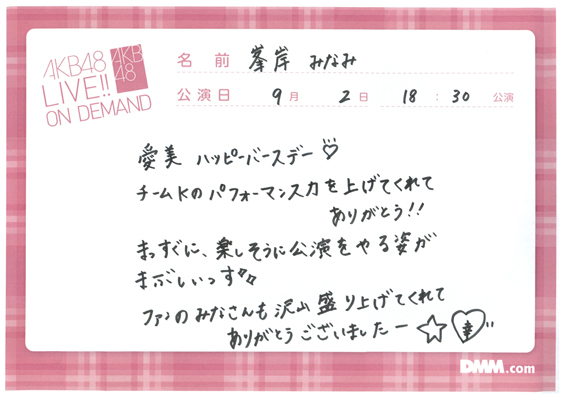 AKB48
LIVE!!
ON DEMAND
AKB
48
名前 峯岸 みなみ
公演日 9月 2日 18:30 公演
愛美 ハッピーバースデー♡
チームKのパフォーマンス力を上げてくれて
ありがとう!!
まっすぐに、楽しそうに公演をやる姿が
まぶしいっす
ファンのみなさんも沢山盛り上げてくれて
ありがとうございましたー☆
幸
DMM.com